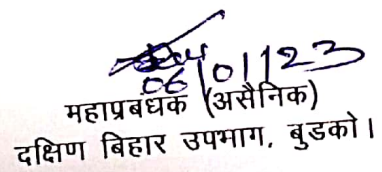 06/01/23
महाप्रबंधक (असैनिक)
दक्षिण बिहार उपभाग, बुडको।